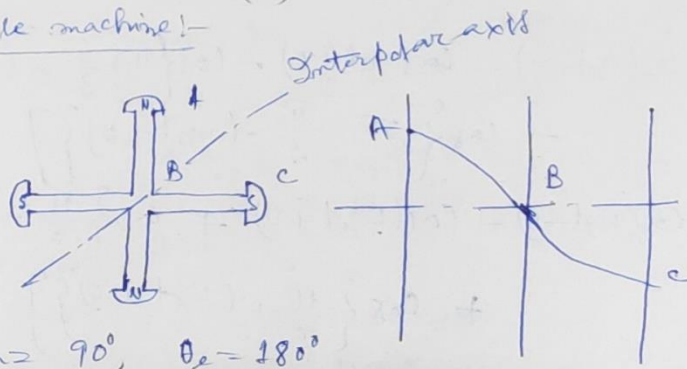 le machine:-
Interpolar axis
N A
A
B
B
C
S
S
N
C
= 90°, θe = 180°